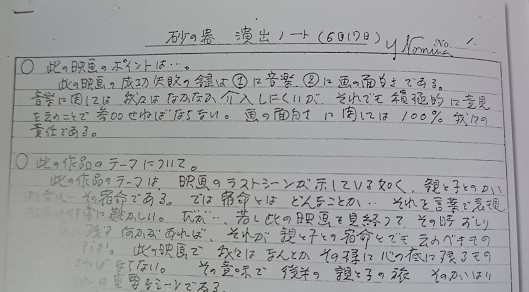 砂の器 演出ノート(6日17日) y Nomura No. 1
○ 此の映画のポイントは…。
此の映画の成功失敗の鍵は①に音楽、②に画の面白さである。
音楽に関しては我々はなかなか介入しにくいが、それでも積極的に意見
を云うことで参加せねばならない。画の面白さに関しては100% 我々の
責任である。
○ 此の作品のテーマについて。
此の作品のテーマは 映画のラストシーンが示している如く、親と子との
その宿命である。では宿命とはどんなことか…それを言葉で表現
に難かしい。だが…、若し此の映画を見終って その時
残る何かがあれば、それが親と子との宿命とでも云うべきもの
此の映画で我々はなんとかその様に心の底に残るもの
ならない。その意味で後半の親と子の旅 そのかはり
重要なシーンである。